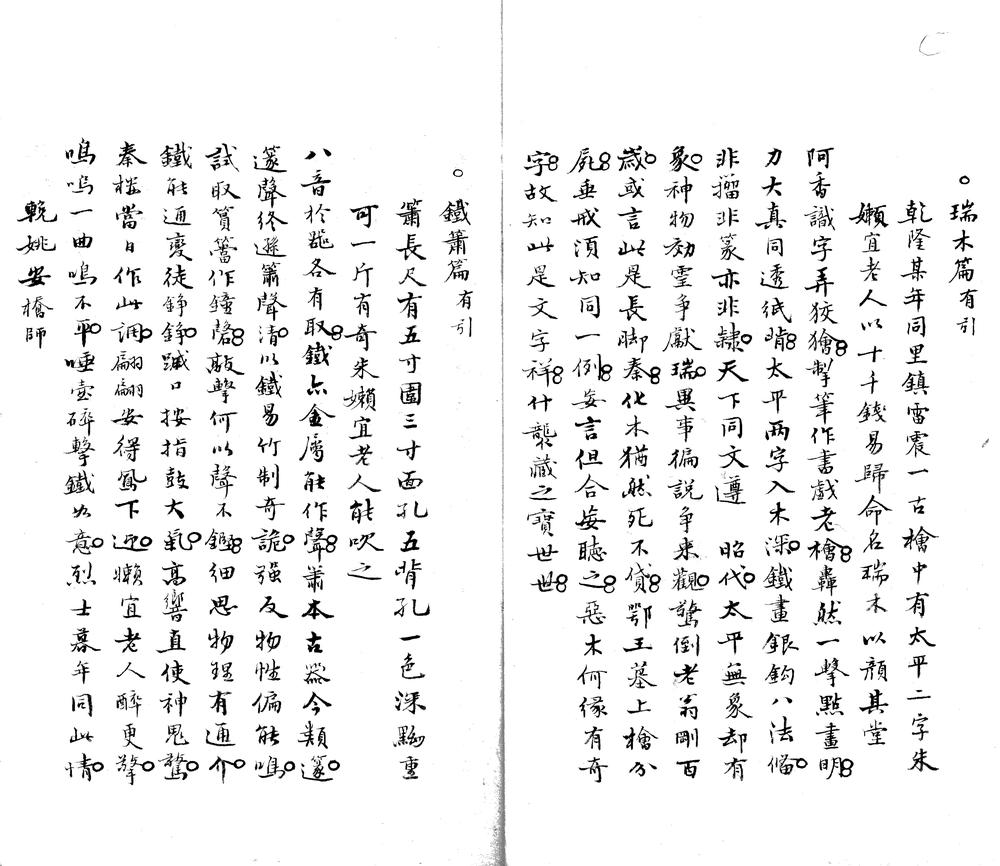 瑞木篇有引
乾隆某年同里鎮雷震一古檜中有太平二字朱
嬾宜老人以十千錢易歸命名瑞木以顏其堂
阿香識字弄狡獪掣筆作書戲老檜轟然一擊點畫明
力大真同透紙背太平兩字入木深鐵畫銀鈎八法俻
非籀非篆亦非隸天下同文遵 昭代太平無象却有
象神物効靈爭獻瑞異事徧説爭来觀驚倒老翁剛百
歲或言此是長脚秦化木猶然死不貸鄂王墓上檜分
屍垂戒須知同一例妄言但合妄聽之惡木何緣有奇
字故知此是文字祥什襲藏之寶世世
鐵簫篇有引
簫長尺有五寸圍三寸面孔五背孔一色深黝重
可一斤有奇朱嬾宜老人能吹之
八音於器各有取鐵亦金屬能作聲簫本古器今類篴
篴聲終遜簫聲清以鐵易竹制奇詭强反物性偏能鳴
試取篔簹作鐘磬敲擊何以聲不鏗細思物理有通介
鐵能通變徒錚錚蹴口按指鼓大氣高響直使神鬼驚
秦樓當日作此調翩翩安得鳳下迎嬾宜老人醉更擎
嗚嗚一曲鳴不平唾壺碎擊鐵如意烈士暮年同此情
輓姚安橋師